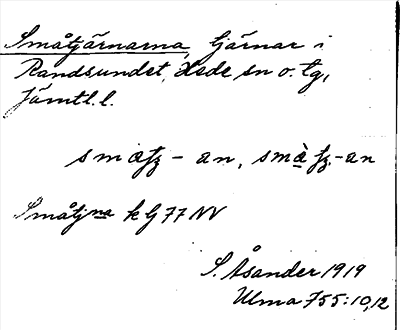 Småtjärnarna, tjärnar i
Randsundet, Hede sn o. tg,
Jämtl. l.
smætʒ - an, smæ̀tʒ - an
Småtjna k G 77 NV
S. Åsander 1919
Ulma 755:10,12